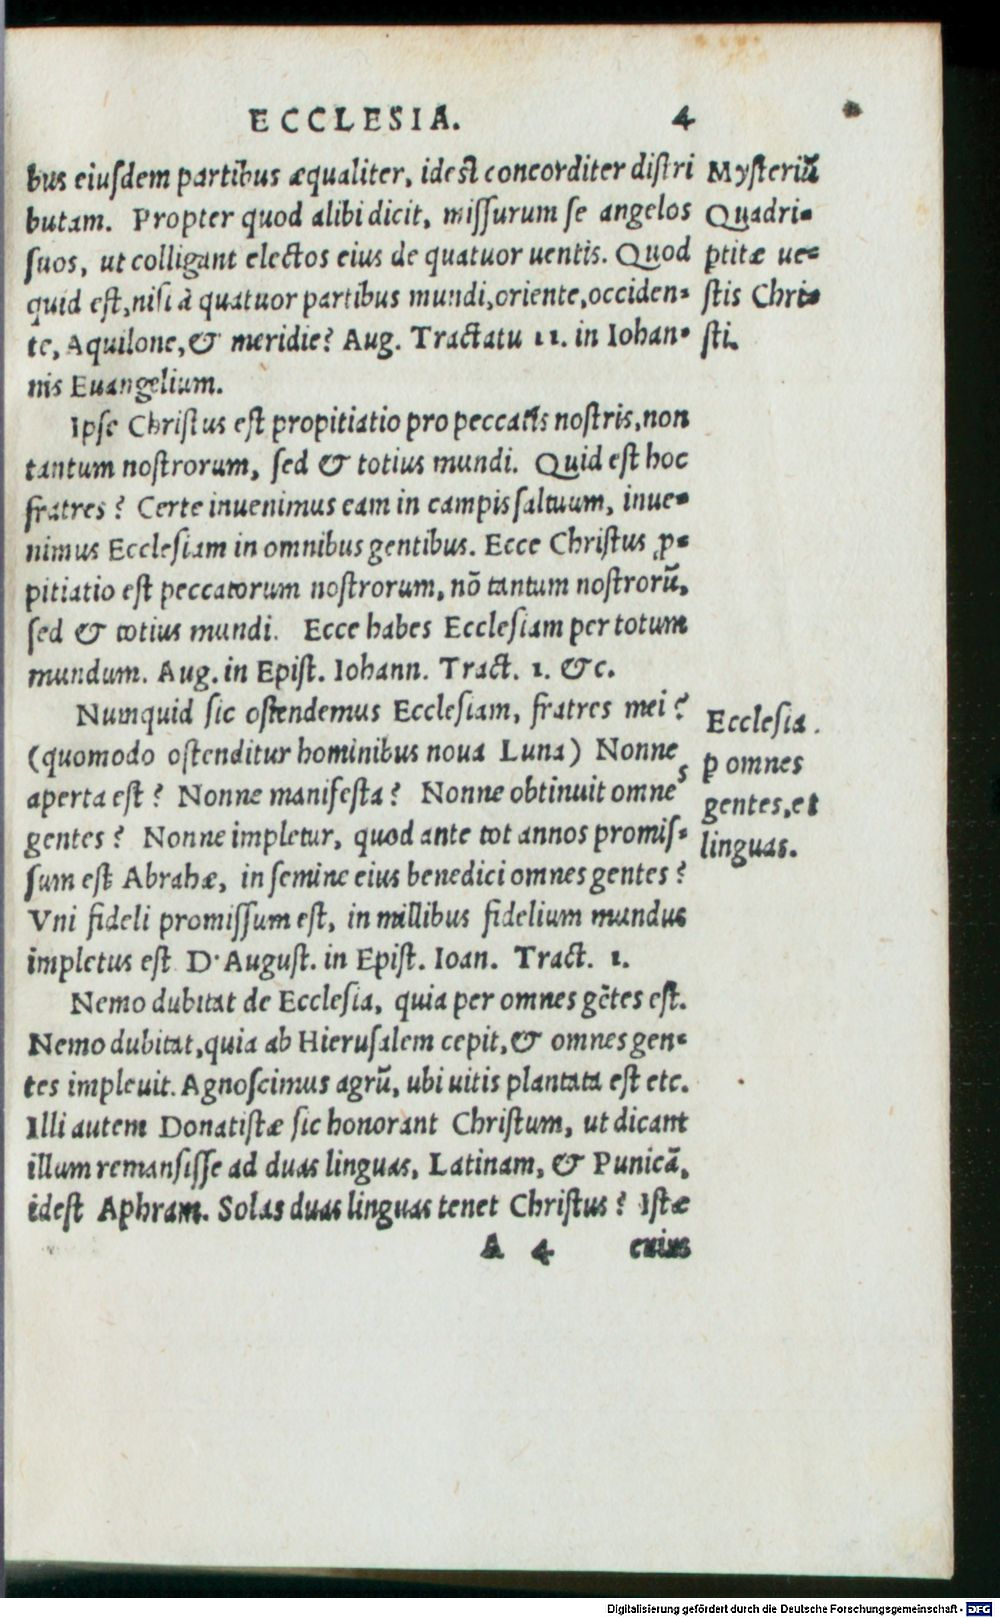 ECCLESIA. 4
bus eiuſdem partibus æqualiter, ideſt concorditer diſtri
butam. Propter quod alibi dicit, miſſurum ſe angelos
ſuos, ut colligant electos eius de quatuor uentis. Quod
quid eſt, niſi à quatuor partibus mundi, oriente, occiden-
te, Aquilone, & meridie? Aug. Tractatu 11. in Iohan-
nis Euangelium.
Myſteriũ
Quadri-
ptitæ ue-
ſtis Chri-
ſti.
Ipſe Chriſtus eſt propitiatio pro peccatis noſtris, non
tantum noſtrorum, ſed & totius mundi. Quid eſt hoc
fratres? Certe inuenimus eam in campis ſaltuum, inue-
nimus Eccleſiam in omnibus gentibus. Ecce Chriſtus ꝓ-
pitiatio eſt peccatorum noſtrorum, nõ tantum noſtrorũ,
ſed & totius mundi. Ecce habes Eccleſiam per totum
mundum. Aug. in Epiſt. Iohann. Tract. 1. &c.
Numquid ſic oſtendemus Eccleſiam, fratres mei?
(quomodo oſtenditur hominibus noua Luna) Nonne
aperta eſt? Nonne manifeſta? Nonne obtinuit omnes
gentes? Nonne impletur, quod ante tot annos promiſ-
ſum eſt Abrahæ, in ſemine eius benedici omnes gentes?
Vni fideli promiſſum eſt, in millibus fidelium mundus
impletus eſt D. Auguſt. in Epiſt. Ioan. Tract. 1.
Eccleſia.
ꝑ omnes
gentes, et
linguas.
Nemo dubitat de Eccleſia, quia per omnes gẽtes eſt.
Nemo dubitat, quia ab Hieruſalem cepit, & omnes gen-
tes impleuit. Agnoſcimus agrũ, ubi uitis plantata eſt etc.
Illi autem Donatiſtæ ſic honorant Chriſtum, ut dicant
illum remanſiſſe ad duas linguas, Latinam, & Punicã,
ideſt Aphram. Solas duas linguas tenet Chriſtus? Iſtæ
A 4 enim
Digitalisierung gefördert durch die Deutsche Forschungsgemeinschaft - DFG